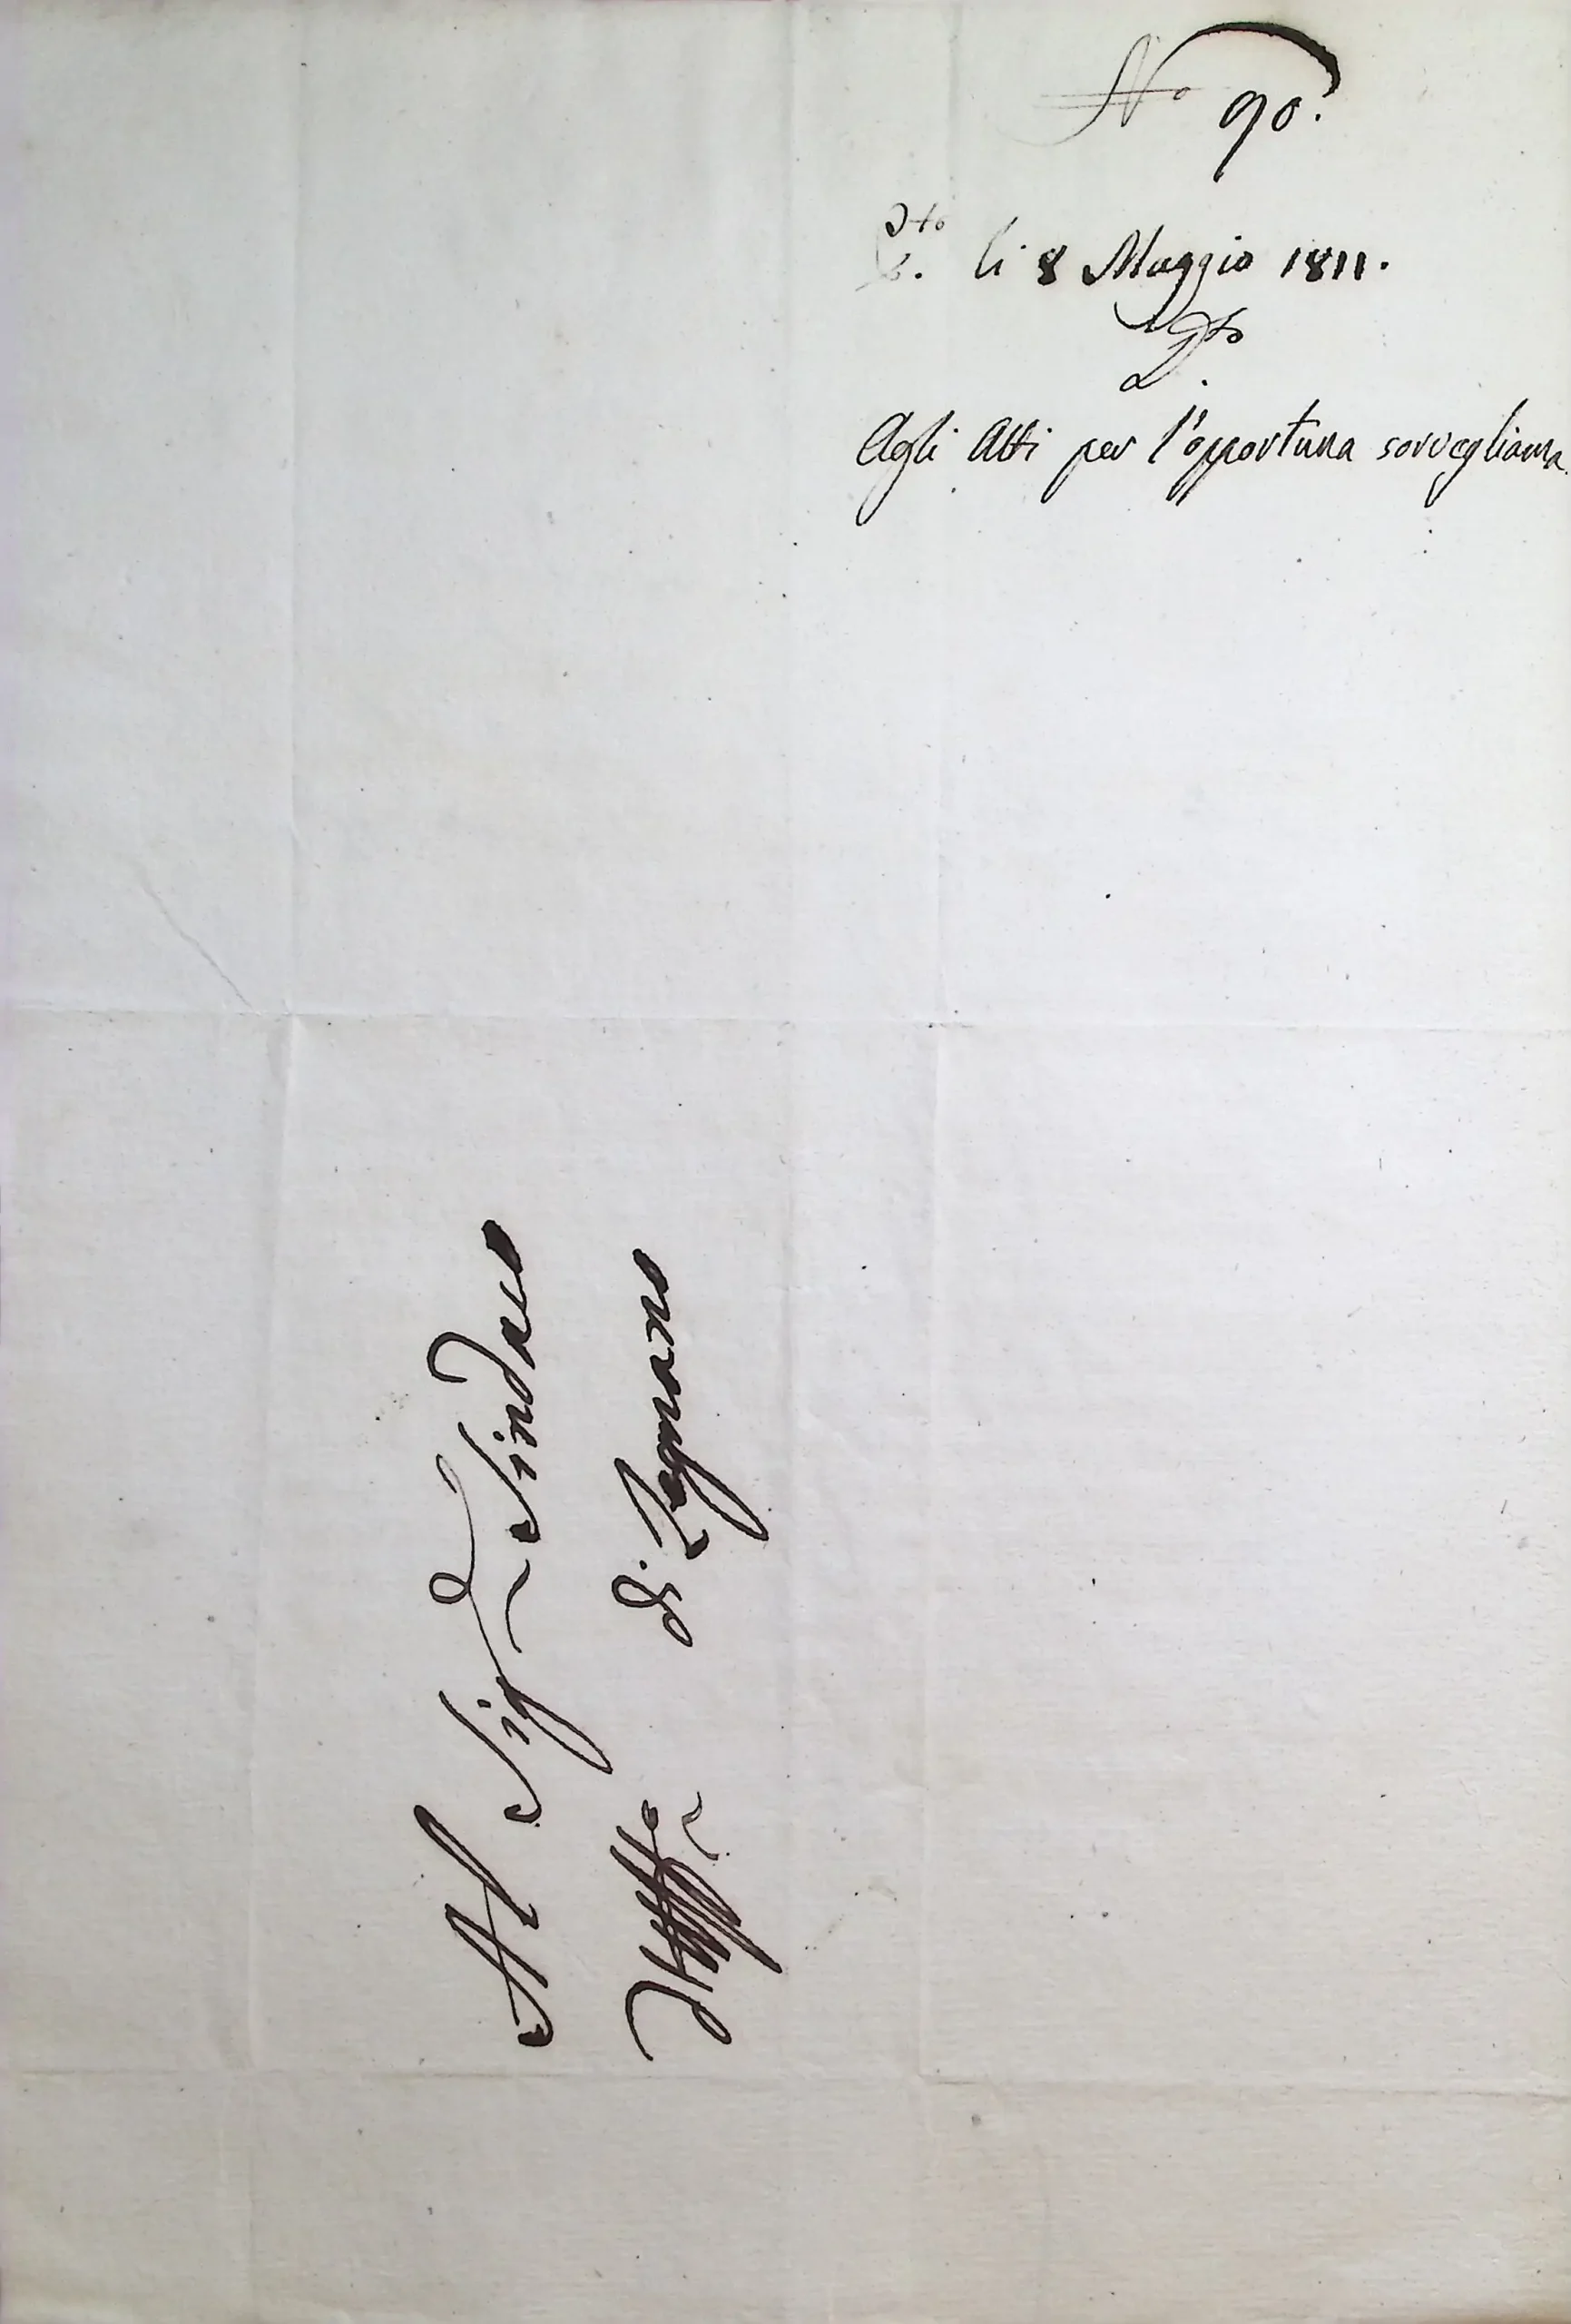 N.o 90.
li 8 Maggio 1811.
Agli Atti per l'opportuna sorveglianza
Al Sig.r Sindaco
di Legnano